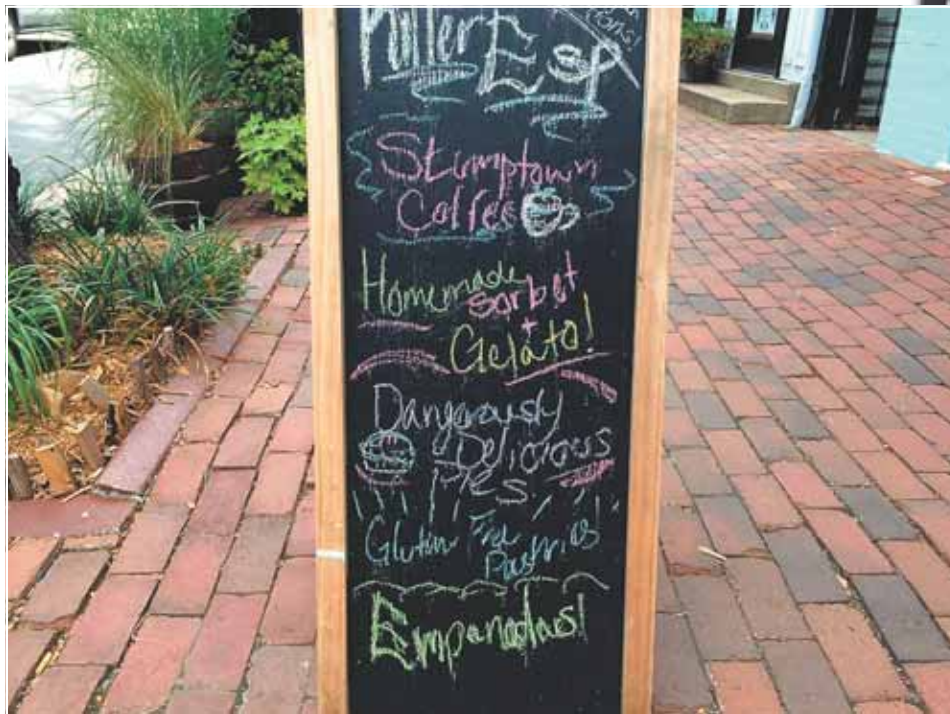 Killer Esp
Stumptown
Coffee
Homemade Sorbet
+
Gelato!
Dangerously
Delicious
Pies.
Gluten Free
Pastries!
Empanadas!